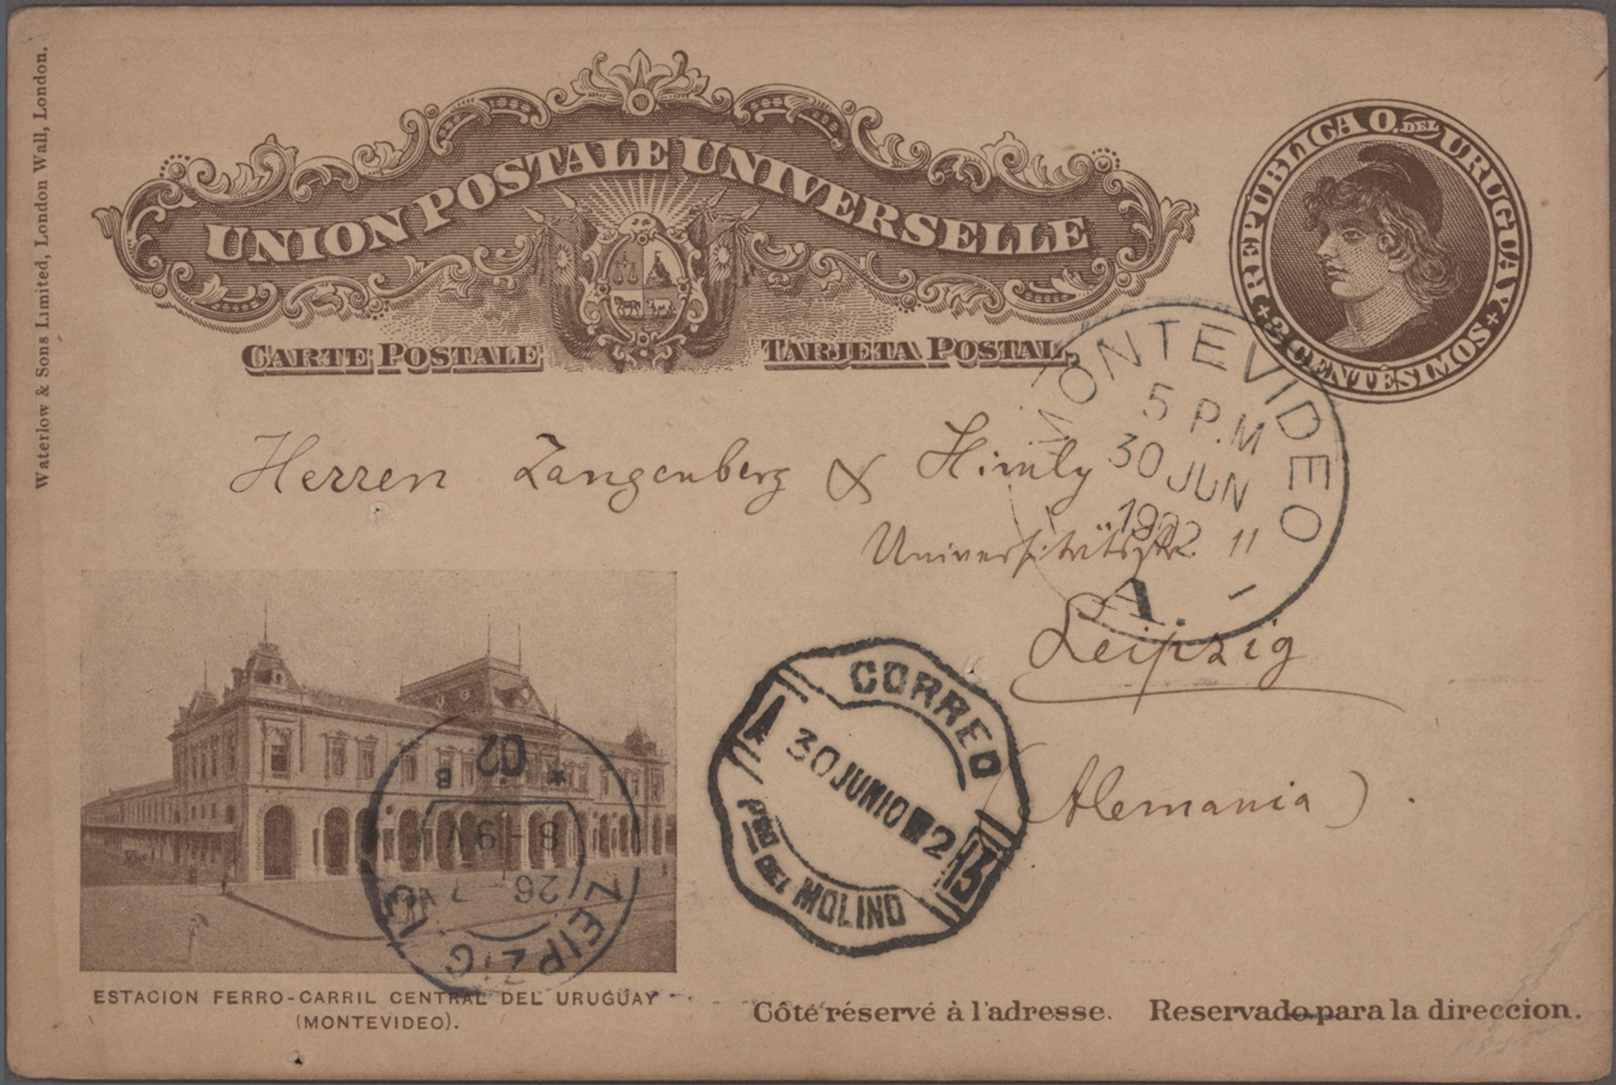 Waterlow & Sons Limited, London Wall, London.
UNION POSTALE UNIVERSELLE
REPUBLICA O. DEL URUGUAY
CENTÉSIMOS
CARTE POSTALE TARJETA POSTAL
MONTEVIDEO
5 P.M
30 JUN
1902
A.
Herren Langenberg & Himly
Universitätsstr. 11
Leipzig
(Alemania).
CORREO
A 30 JUNIO 2 13
Pso DEL MOLINO
LEIPZIG 13
26 7
8-9V
* 02 B
ESTACION FERRO-CARRIL CENTRAL DEL URUGUAY
(MONTEVIDEO).
Côté réservé à l'adresse. Reservado para la direccion.